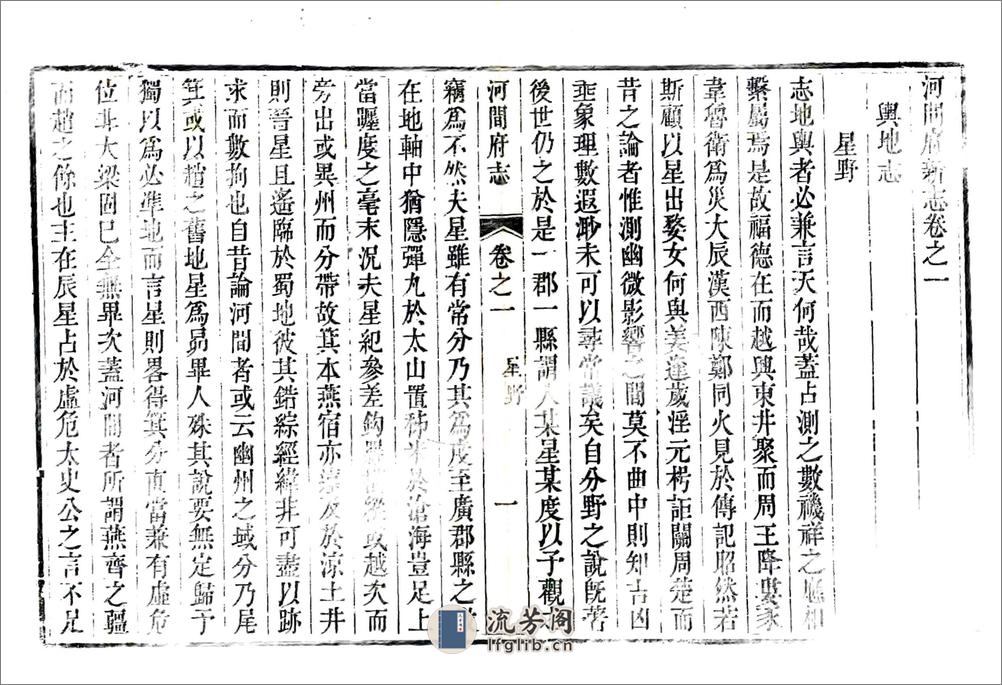 河間府新志卷之一
輿地志
星野
志地輿者必兼言天何哉蓋占測之數禨祥之應相
繫屬焉是故福德在而越興東井聚而周王降婁豕
韋魯衛爲災大辰漢西陳鄭同火見於傳記昭然若
斯顧以星出婺女何與姜逢歲淫元枵詎關周楚而
昔之論者惟測幽微影響之間莫不曲中則知吉凶
垂象理數遐渺未可以尋常議矣自分野之說旣著
後世仍之於是一郡一縣謂入某星某度以予觀
河間府志 卷之一 星野 一
竊爲不然夫星雖有常分乃其爲度至廣郡縣之
在地軸中猶隱彈丸於太山置稊米於滄海豈足上
當躔度之毫末況夫星紀參差鉤 或越次而
旁出或異州而分帶故箕本燕宿亦 及於涼土井
則晉星且遙臨於蜀地彼其錯綜經緯非可盡以跡
求而數拘也自昔論河間者或云幽州之域分乃尾
箕或以趙之舊地星爲昴畢人殊其說要無定歸于
獨以爲必準地而言星則畧得箕分直當兼有虛危
位非大梁固已全無畢次蓋河間者所謂燕齊之疆
而趙之餘也主在辰星占於虛危太史公之言不足
流芳阁
lfglib.cn